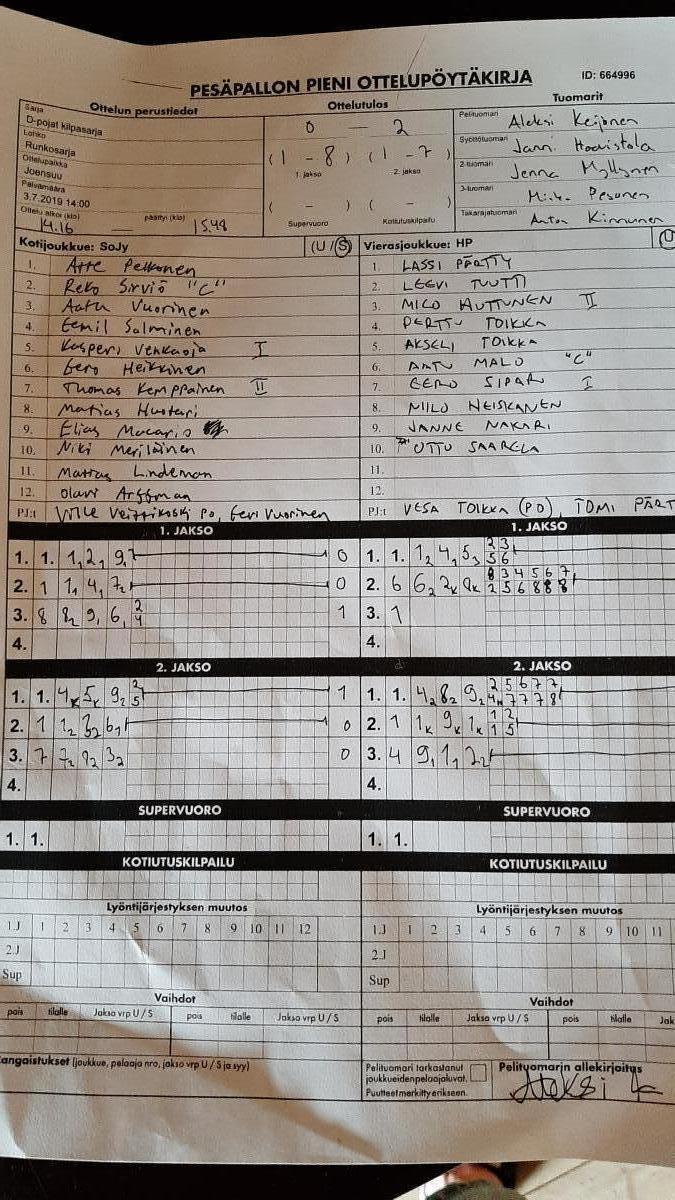 PESÄPALLON PIENI OTTELUPÖYTÄKIRJA
ID: 664996
Ottelun perustiedot
Sarja
D-pojat kilpasarja
Lohko
Runkosarja
Ottelupaikka
Joensuu
Päivämäärä
3.7.2019 14:00
Ottelu alkoi (klo) päättyi (klo)
14.16 — 15.48
Ottelutulos
0 — 2
(1 - 8) (1 - 7)
1. jakso 2. jakso
( - ) ( - )
Supervuoro Kotiutuskilpailu
Tuomarit
Pelituomari Aleksi Keijonen
Syöttötuomari Janni
2-tuomari Jenna Myllynen
3-tuomari Pesonen
Takarajatuomari Anton Kinnunen
Kotijoukkue: SoJy (U / S)
1. Atte Pelkonen
2. Reko Sirviö "C"
3. Aatu Vuorinen
4. Eemil Salminen
5. Kasperi I
6. Eero Heikkinen
7. Thomas Kemppainen II
8. Matias Huotari
9. Elias Macario
10. Niki Meriläinen
11. Mattias Lindeman
12. Olavi Arffman
PJ:t Ville PO, Eevi Vuorinen
Vierasjoukkue: HP (U
1. LASSI PÄRTTY
2. LEEVI TUUTTI
3. MILO HUTTUNEN II
4. PERTTU TOIKKA
5. AKSELI TOIKKA
6. AATU MALO "C"
7. EERO SIPARI I
8. NIILO HEISKANEN
9. JANNE NAKARI
10. OTTO SAARELA
11.
12.
PJ:t VESA TOIKKA (PO), TOMI PÄRT
1. JAKSO
1. 1. 1₁ 2₁ 9₁ 0
2. 1 1₁ 4₁ 7₂ 0
3. 8 8₂ 9₁ 6₁ 2 4 1
4.
1. JAKSO
1. 1. 1₂ 4₁ 5₃ 2 3 5 6
2. 6 6₂ 2ₖ 9ₖ 8 3 4 5 6 7 2 5 6 8 8 8
3. 1
4.
2. JAKSO
1. 1. 4ₖ 5ₖ 9₂ 2 5 1
2. 1 1₂ 3₂ 6₁ 0
3. 7 7₂ 9₂ 3₂ 0
4.
2. JAKSO
1. 1. 4₂ 8₂ 9₂ 2 5 6 7 7 4 7 7 7 8
2. 1 1ₖ 9ₖ 1ₖ 1 2 1 5
3. 4 9₁ 1₁ 2₂
4.
SUPERVUORO
1. 1.
SUPERVUORO
1. 1.
KOTIUTUSKILPAILU
KOTIUTUSKILPAILU
Lyöntijärjestyksen muutos
1.J 1 2 3 4 5 6 7 8 9 10 11 12
2.J
Sup
Lyöntijärjestyksen muutos
1.J 1 2 3 4 5 6 7 8 9 10 11
2.J
Sup
Vaihdot
pois tilalle Jakso vrp U / S pois tilalle Jakso vrp U / S
Vaihdot
pois tilalle Jakso vrp U / S pois tilalle Jak
angaistukset (joukkue, pelaaja nro, jakso vrp U / S ja syy)
Pelituomari tarkastanut
joukkueiden pelaajaluvat.
Puutteet merkitty erikseen.
Pelituomarin allekirjoitus
Aleksi K